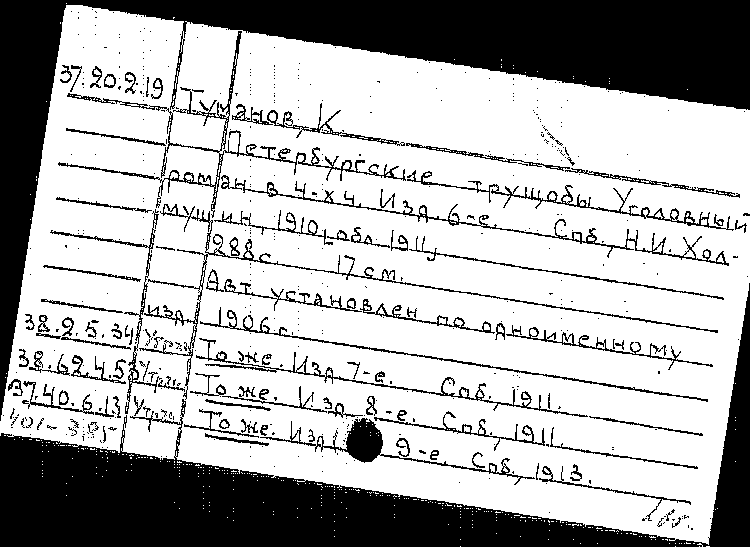 37.20.2.19 Туманов, К.
Петербургские трущобы Уголовный
роман в 4-х ч. Изд. 6-е. Спб., Н.И. Хол-
мушин, 1910, [обл. 1911]
288 с. 17 см.
Авт. установлен по одноименному
изд. 1906 г.
38.2.5.34 Утрач. То же. Изд. 7-е. Спб., 1911.
38.62.4.53 Утрач. То же. Изд. 8-е. Спб., 1911.
37.40.6.13 Утрач. То же. Изд. 9-е. Спб., 1913.
401-3,85